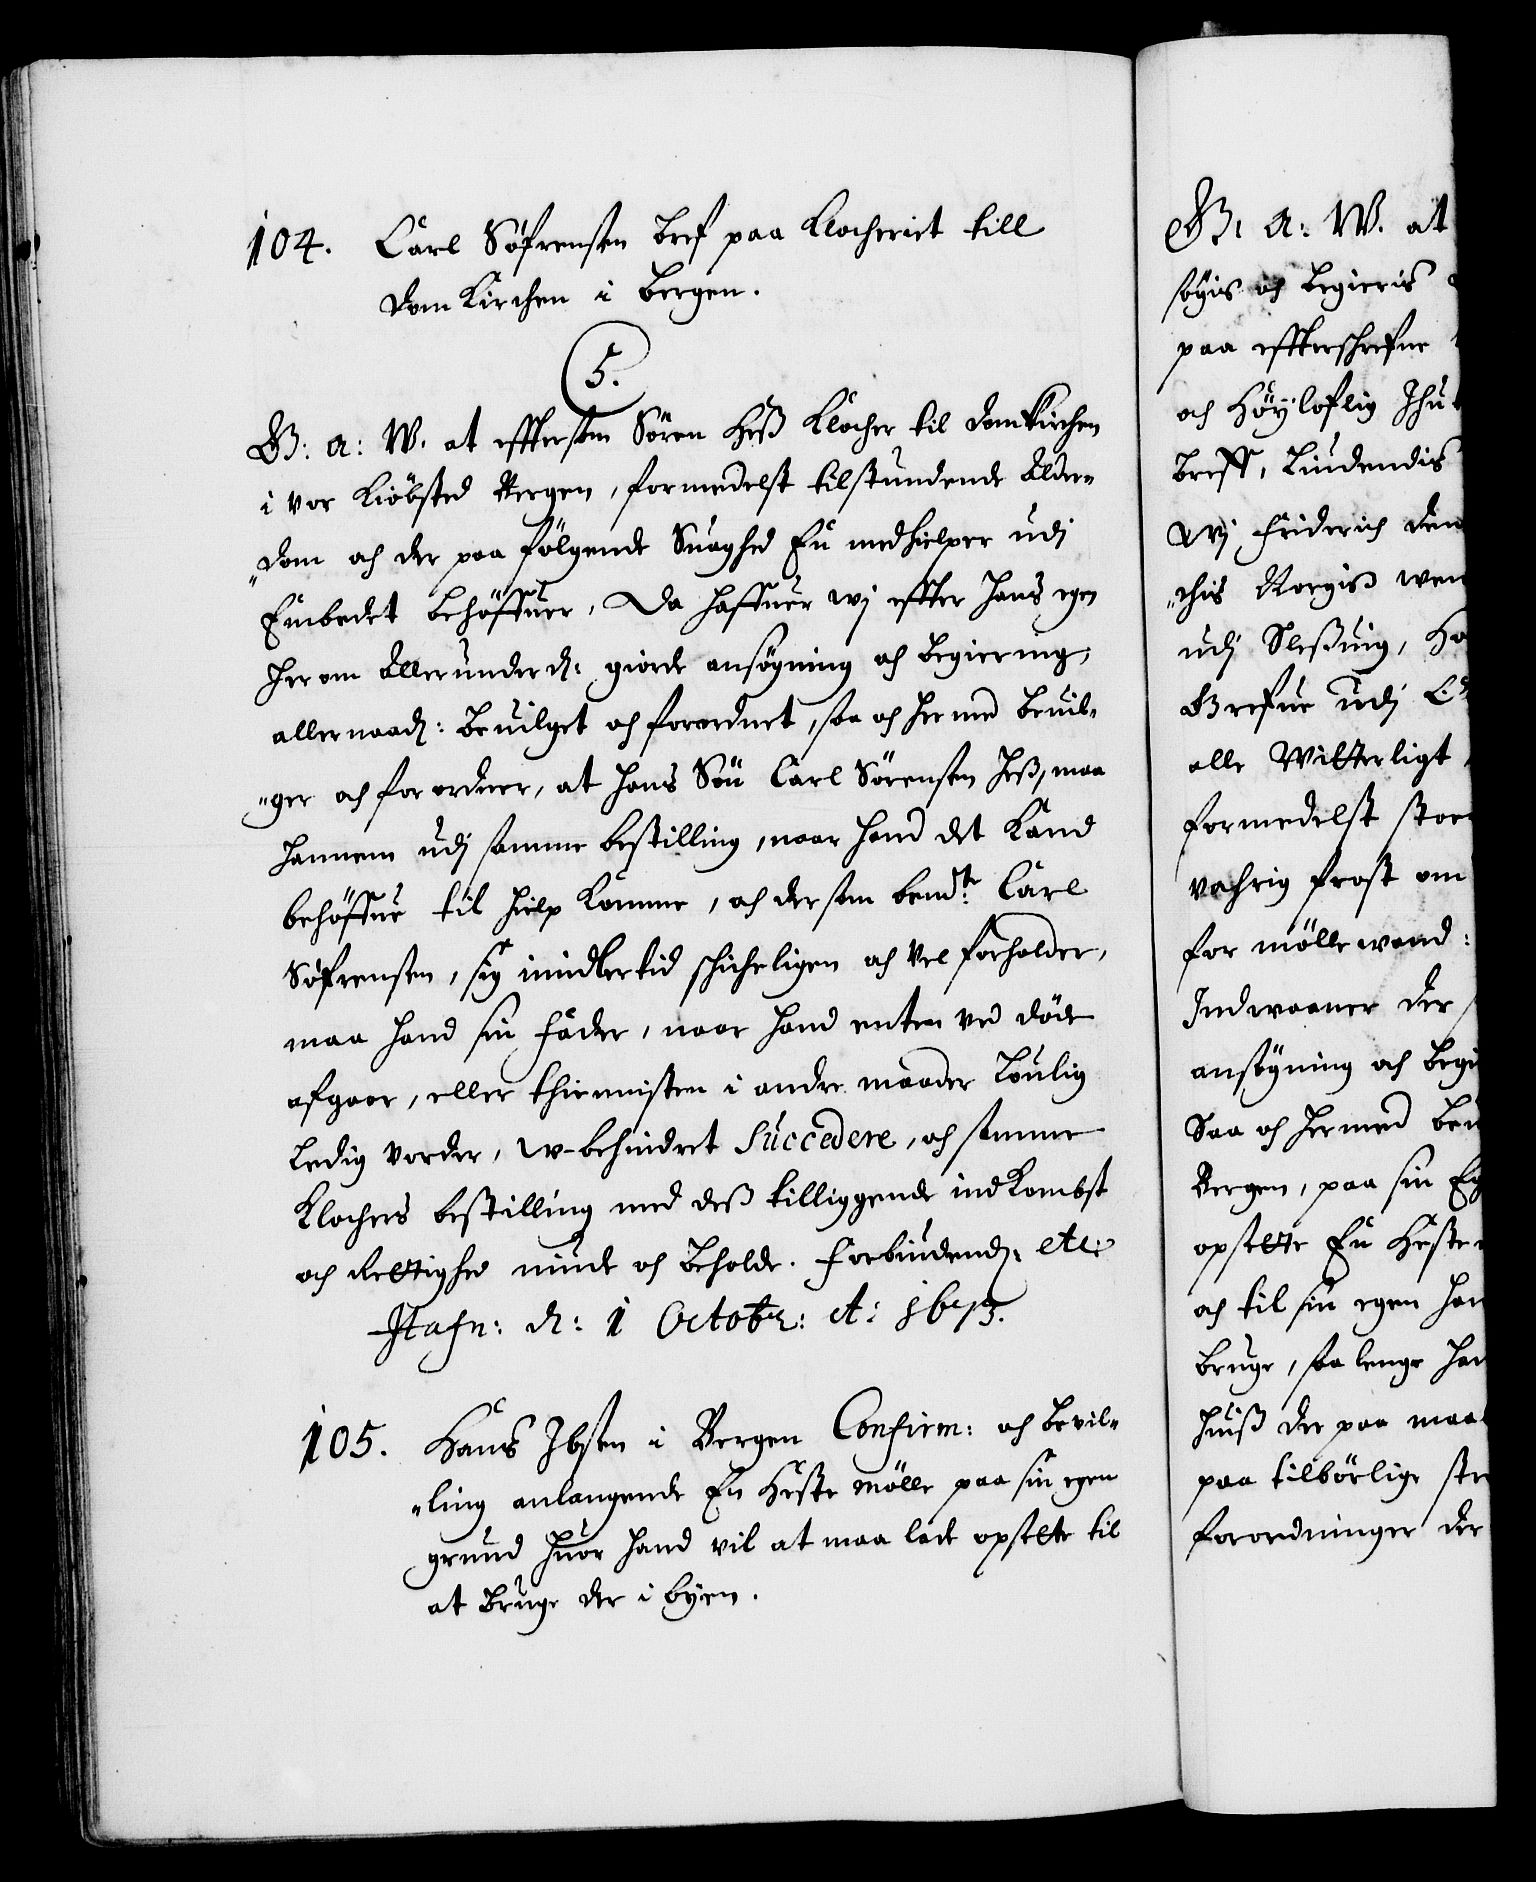 104. Carl Söfrensen bref paa Klocheriet till
Dom Kirchen i Bergen.
5.
G: A: W. at effterson Sören Heß Klocher til Domkirchen
i vor Kiöbsted Bergen, formedelst tilstundende Alder„
„dom och der paa fölgende Suaghed En medhielper udj
Embedet behöffuer, Da haffuer wj effter hans egen
her om Allerunderd: giorde ansögning och begiering,
allernaad: beuilget och forordnet, saa och hermed beuil„
„ger och forordner, at hans Sön Carl Sörensen Heß, maa
hannem udj samme bestilling, naar hand det Kand
behöffue til hielp Komme, och dersom bemdte: Carl
Söfrensen, sig imidlertid schicheligen och vel forholder,
maa hand sin Fader, naar hand enten ved döde
afgaar, eller thiennisten i andre maader Loulig
Ledig vorder, w-behindret Succedere, och samme
Klochers bestilling med deß tilliggende indKombst
och Rettighed niude och beholde. Forbiudend: etc:
Hafn: d: 1 Octobr: A: 1673.
105. Hans Ibsen i Bergen Confirm: och bevil„
„ling anlangende En Heste mölle paa sin egen
grund huor hand vil at maa lade opsette til
at bruge der i byen.
G: A: W. at
sögis och begieris
paa effterschrefne
och Höyloflig Ihu
breff, Liudendis
Wj Friderich den
„chis Norgis wen
udj Sleßuig, Ho
Grefue udj
alle Witterligt
formedelst stor
vahrig frost om
for möllewand:
Indwaaner der
ansögning och begi
Saa och hermed beu
Bergen, paa sin Eg
opsette En Heste
och til sin egen han
bruge, saa lenge han
huiß der paa maa
paa tilbörlige ste
forordninger der